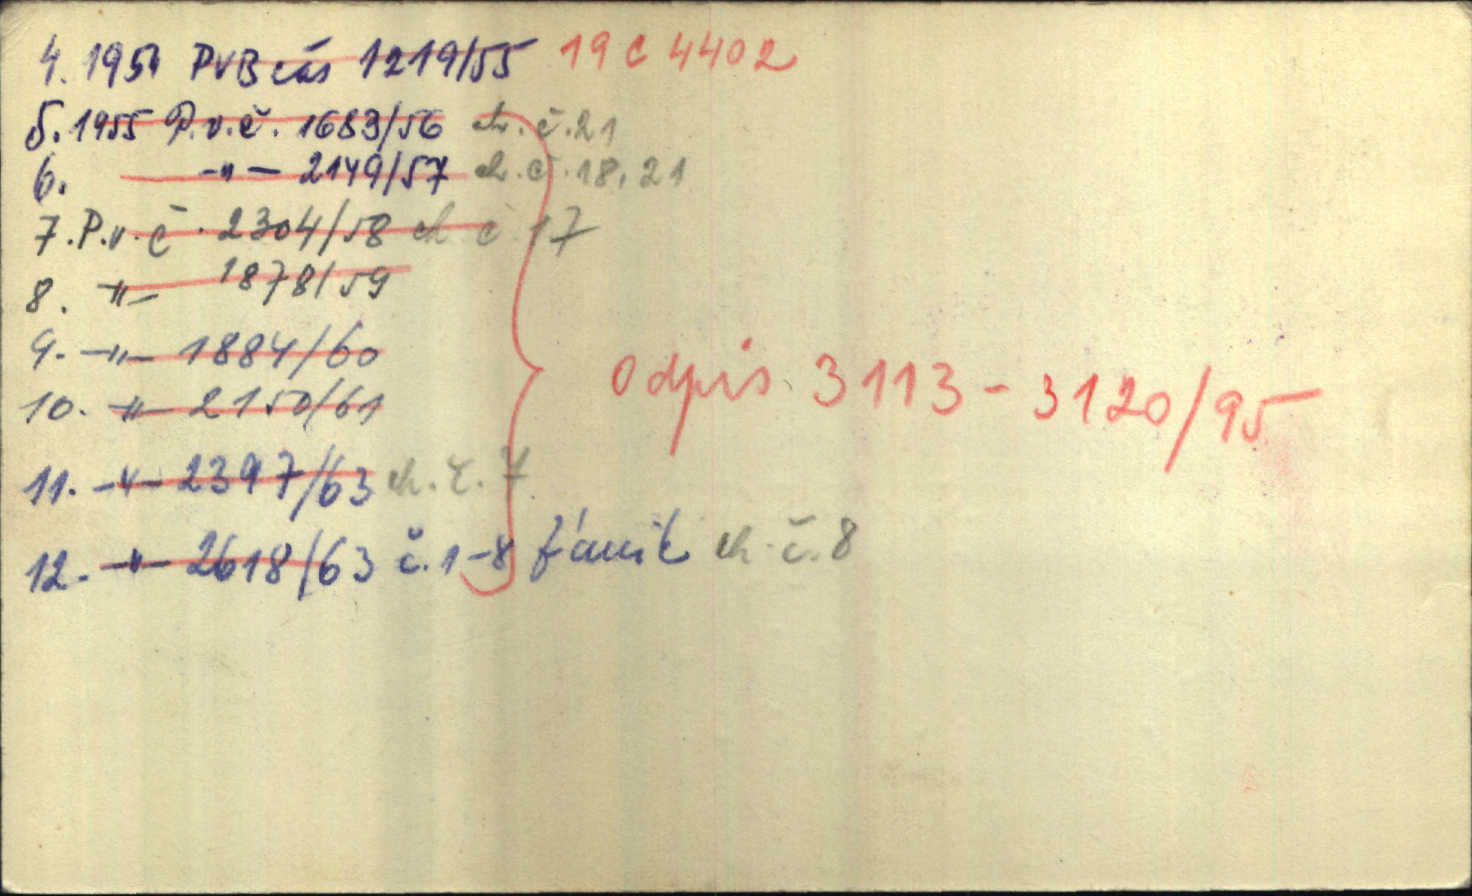 4. 1954 PVB čás 1219/55 19 C 4402
5. 1955 P.v.č. 1683/56 ch.č.21
6. -"- 2149/57 ch.č.18,21
7. P.v.č. 2304/58 ch č 17
8. -"- 1878/59
9. -"- 1884/60
Odpis 3113-3120/95
10. -"- 2150/61
11. -"- 2397/63 ch.č.7
12. -"- 2618/63 č.1-8 ch.č.8